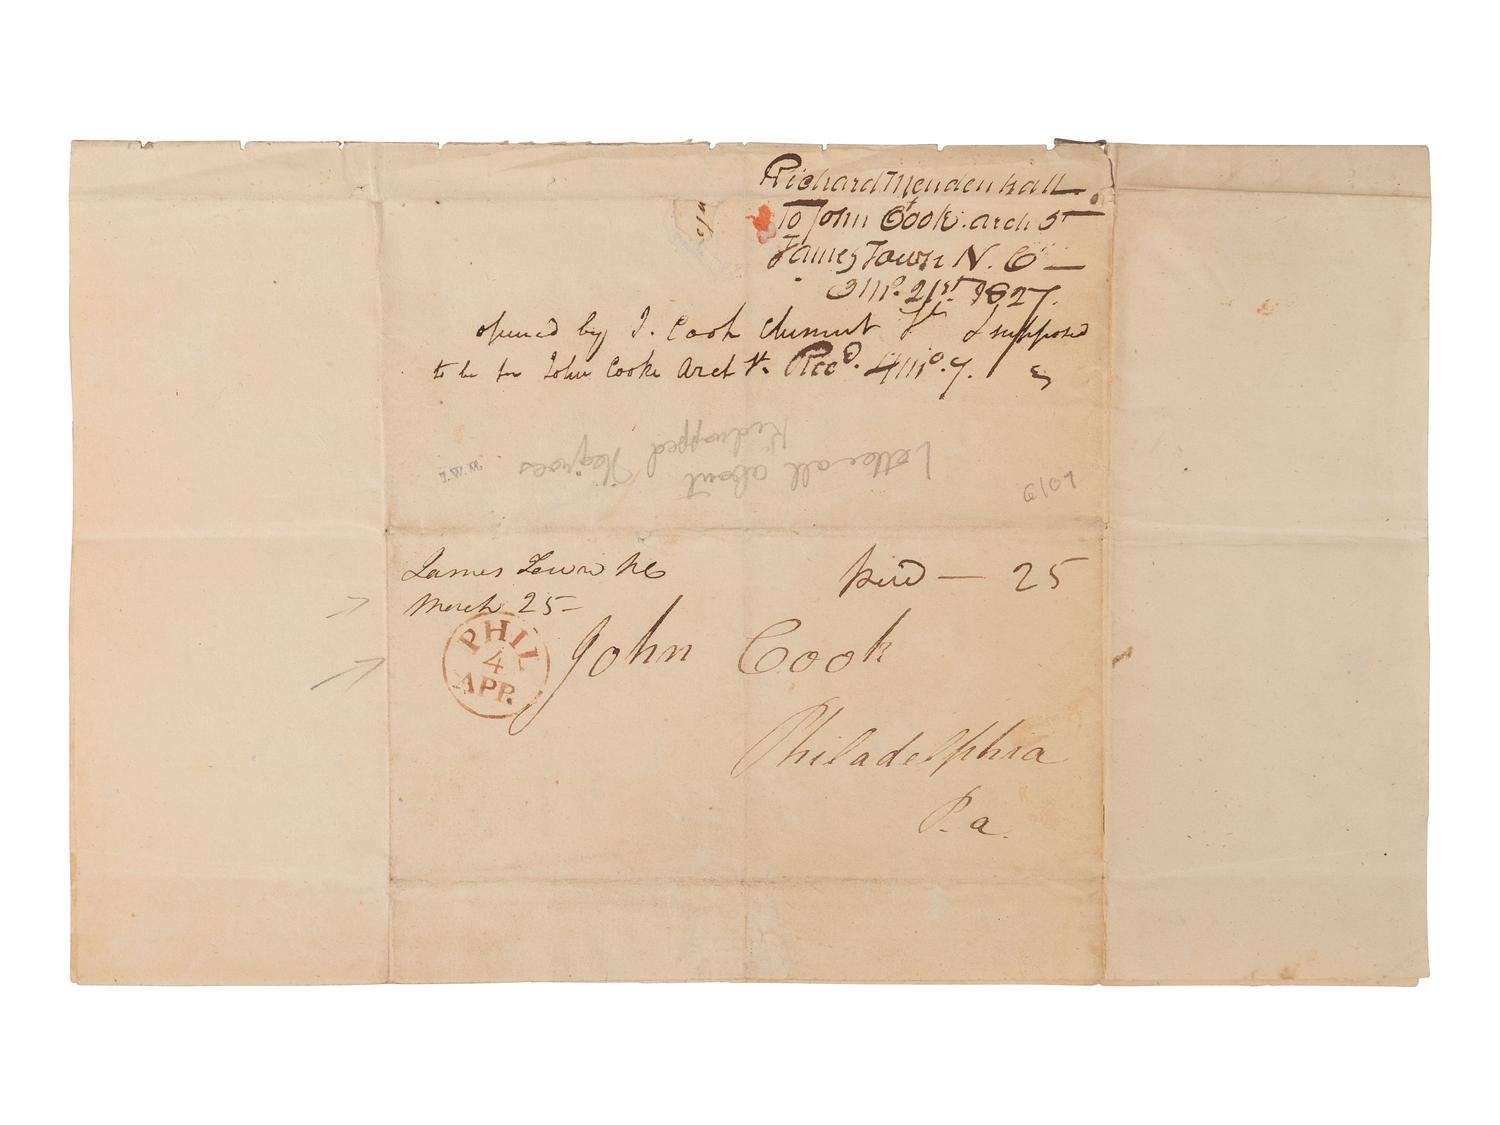 Richard Mendenhall
To John Cook. arch St
James Town N. C —
3 Mo. 21st. 1827.
opened by J. Cook Chesnut St & supposed
to be for John Cooke Arch St. Recd. 4 mo. 7.
Letter all about
Kidnapped Negroes
J.W.M.
James Town NC
March 25 –
paid — 25
PHIL
4
APR.
John Cook
Philadelphia
P. a.